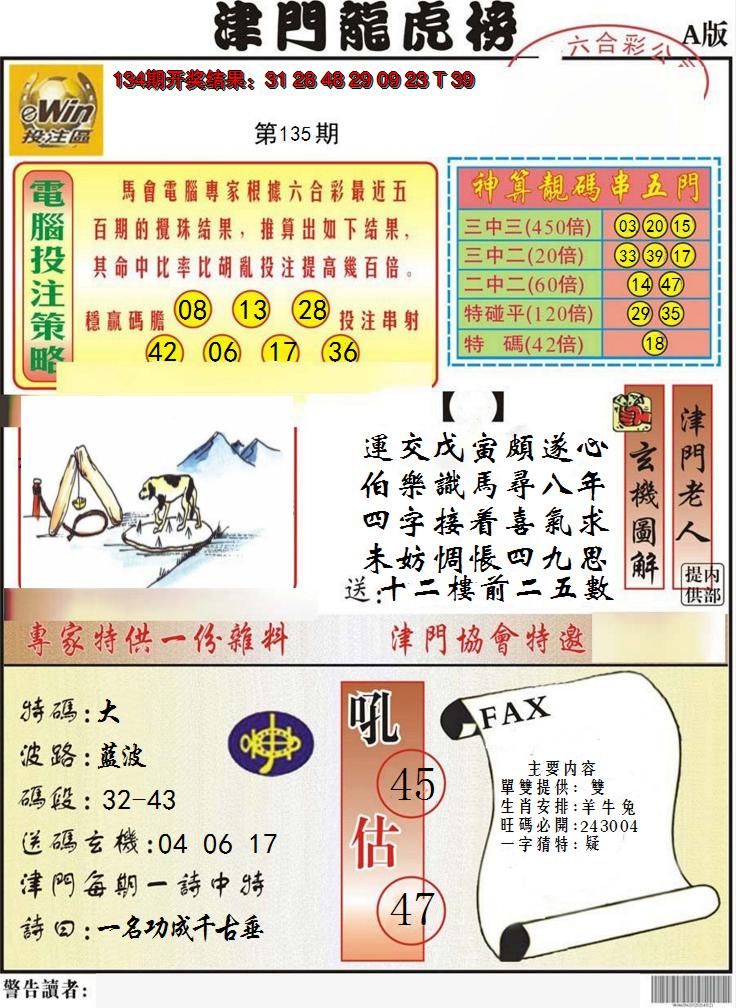 津門龍虎榜
六合彩公
A版
134期开奖结果：31 28 48 29 09 23 T 39
eWin
投注區
第135期
電腦投注策略
馬會電腦專家根據六合彩最近五
百期的攪珠结果，推算出如下结果，
其命中比率比胡亂投注提高幾百倍。
穩贏碼膽 08 13 28 投注串射
42 06 17 36
神算靚码串五門
三中三(450倍) 03 20 15
三中二(20倍) 33 39 17
二中二(60倍) 14 47
特碰平(120倍) 29 35
特 碼(42倍) 18
【 】
運交戊寅頗遂心
伯樂識馬尋八年
四字接着喜氣求
未妨惆悵四九思
送：十二樓前二五數
玄機圖解
津門老人
内部
提供
專家特供一份雜料
津門協會特邀
特碼：大
波路：藍波
碼段：32-43
送碼玄機：04 06 17
津門每期一詩中特
詩曰：一名功成千古垂
吼
45
估
47
FAX
主要内容
單雙提供：雙
生肖安排：羊牛兔
旺碼必開：243004
一字猜特：疑
警告讀者：